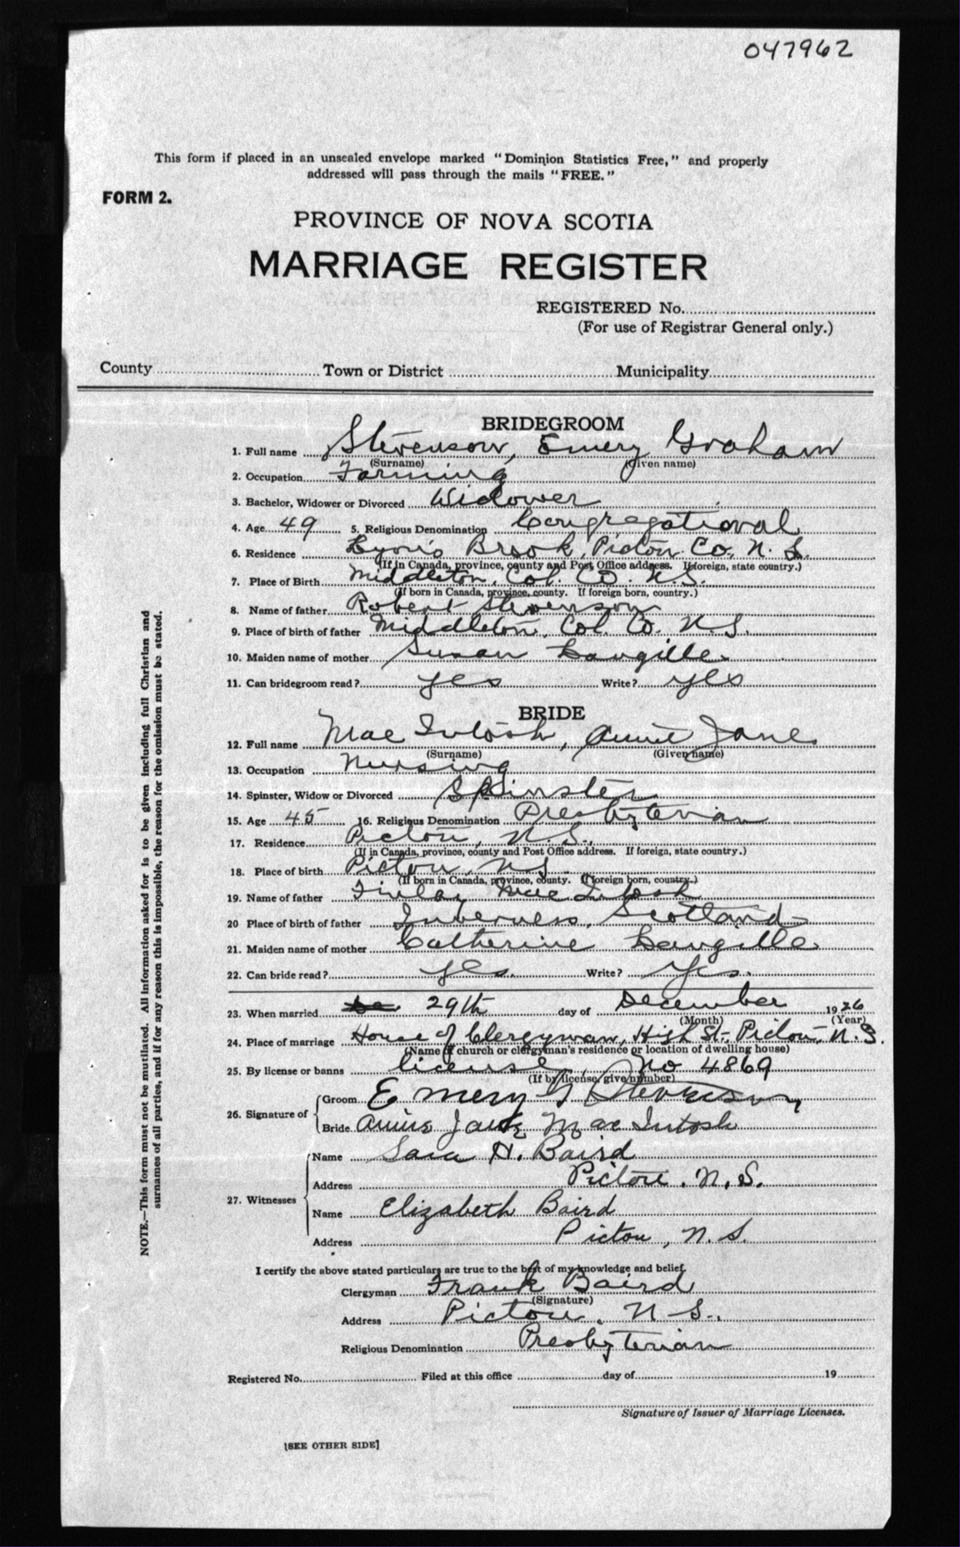 047962
This form if placed in an unsealed envelope marked "Dominion Statistics Free," and properly
addressed will pass through the mails "FREE."
FORM 2.
PROVINCE OF NOVA SCOTIA
MARRIAGE REGISTER
REGISTERED No.
(For use of Registrar General only.)
County Town or District Municipality
BRIDEGROOM
1. Full name Stevenson, Emery Graham
(Surname) (Given name)
2. Occupation Farming
3. Bachelor, Widower or Divorced Widower
4. Age 49 5. Religious Denomination Congregational
6. Residence Lyons Brook, Pictou Co. N.S.
(If in Canada, province, county and Post Office address. If foreign, state country.)
7. Place of Birth Middleton, Col. Co. N.S.
(If born in Canada, province, county. If foreign born, country.)
8. Name of father Robert Stevenson
9. Place of birth of father Middleton, Col. Co. N.S.
10. Maiden name of mother Susan Langille
11. Can bridegroom read? yes Write? yes
BRIDE
12. Full name MacIntosh, Annie Jane
(Surname) (Given name)
13. Occupation Nursing
14. Spinster, Widow or Divorced Spinster
15. Age 45 16. Religious Denomination Presbyterian
17. Residence Pictou, N.S.
(If in Canada, province, county and Post Office address. If foreign, state country.)
18. Place of birth Pictou, N.S.
(If born in Canada, province, county. If foreign born, country.)
19. Name of father Finlay MacIntosh
20 Place of birth of father Inverness, Scotland
21. Maiden name of mother Catherine Langille
22. Can bride read? yes Write? Yes.
23. When married 29th day of December 1926
(Month) (Year)
24. Place of marriage House of Clergyman, High St. Pictou, N.S.
(Name of church or clergyman's residence or location of dwelling house)
25. By license or banns license, No 4869
(If by license, give number)
26. Signature of Groom Emery G Stevenson
Bride Annie Jane MacIntosh
27. Witnesses Name Sara H. Baird
Address Pictou, N.S.
Name Elizabeth Baird
Address Pictou, N.S.
I certify the above stated particulars are true to the best of my knowledge and belief.
Clergyman Frank Baird
(Signature)
Address Pictou, N.S.
Religious Denomination Presbyterian
Registered No. Filed at this office day of 19
Signature of Issuer of Marriage Licenses.
[SEE OTHER SIDE]
NOTE.—This form must not be mutilated. All information asked for is to be given including full Christian and
surnames of all parties, and if for any reason this is impossible, the reason for the omission must be stated.